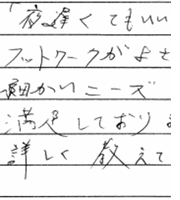 「夜遅くてもいい
フットワークがよさ
細かいニーズ
満足しており
詳しく教えて